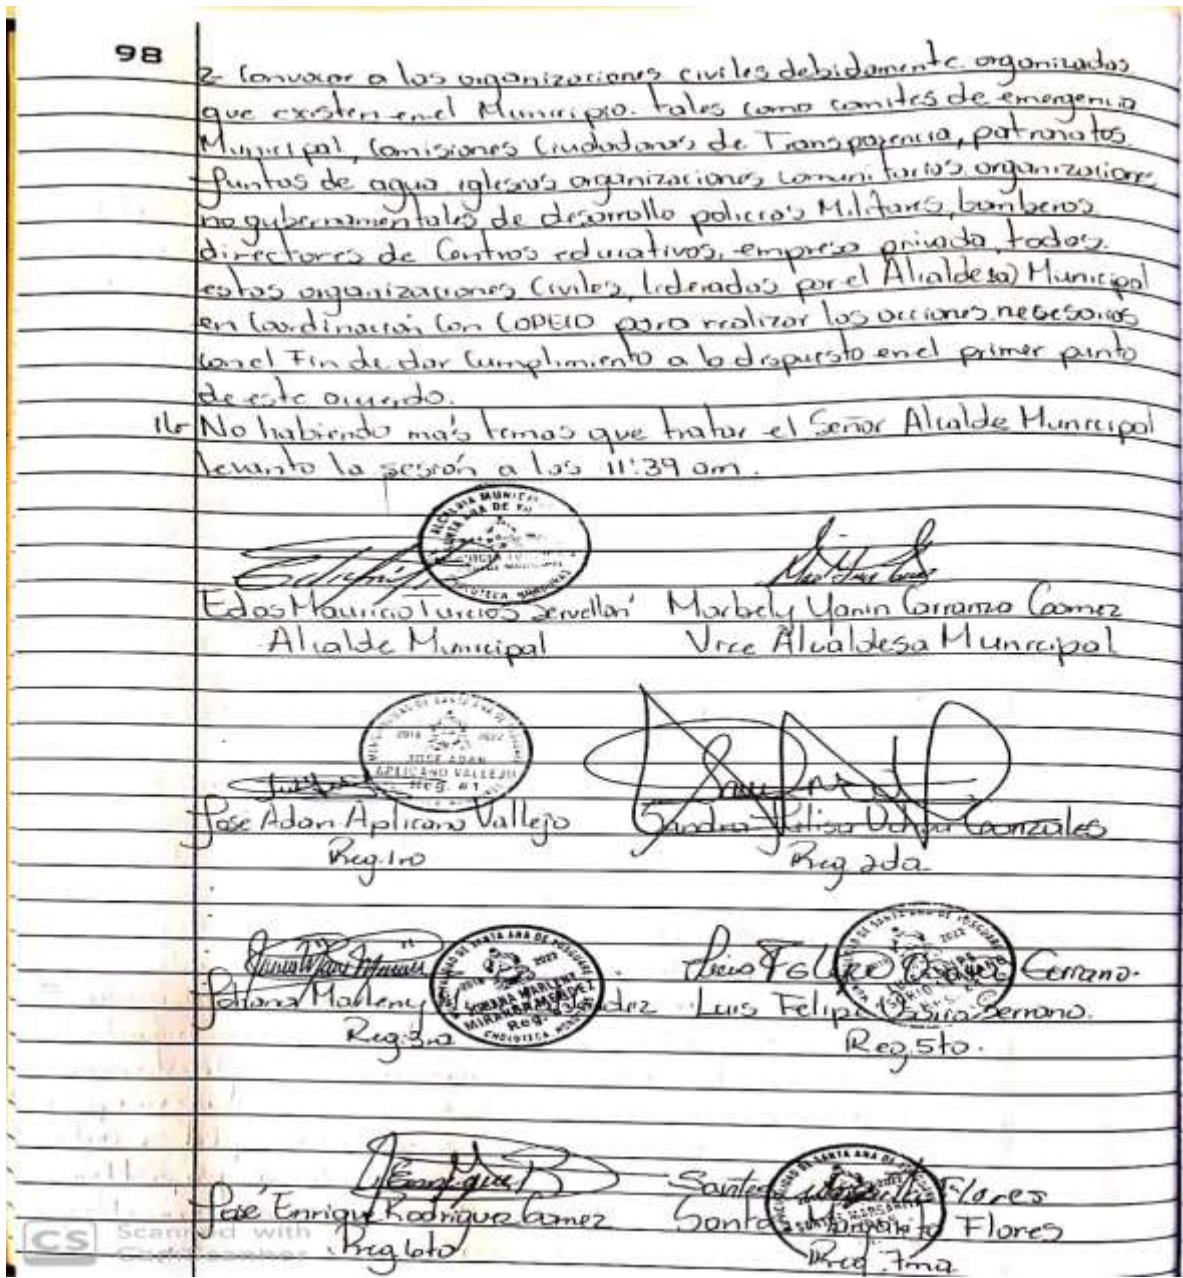 98
2- Convocar a las organizaciones civiles debidamente organizadas
que existen en el Municipio. tales como comites de emergencia
Municipal, Comisiones Ciudadanas de Transparencia, patronatos
Juntas de agua iglesias organizaciones comunitarias organizaciones
no gubernamentales de desarrollo policias Militares, bomberos
directores de Centros educativos, empresa privada, todas
estas organizaciones Civiles, liderados por el Alcalde(sa) Municipal
en Coordinación Con COPECO para realizar las acciones necesarias
con el Fin de dar Cumplimiento a lo dispuesto en el primer punto
de este acuerdo.
16- No habiendo más temas que tratar el Señor Alcalde Municipal
levanto la sesión a las 11:39 am.
Edas Mauricio Turcios Servellón Marbely Yanin Carranza Gomez
Alcalde Municipal Vice Alcaldesa Municipal
2018 2022
JOSE ADAN
APLICANO VALLEJO
Reg. #1
Jose Adan Aplicano Vallejo Sandra Gonzales
Reg. 1ro Reg 2da
MUNICIPALIDAD DE SANTA ANA DE YUSGUARE
2018 2022
MARLENY
MIRANDA MENDEZ
Reg. #3
CHOLUTECA
Marleny Luis Felipe Osorio Serrano.
Reg. 3ra Reg. 5to.
Enrique R Santa Flores
José Enrique Rodriguez Gamez Santa Margarita Flores
Reg 6to Reg. 7ma
CS Scanned with
CamScanner